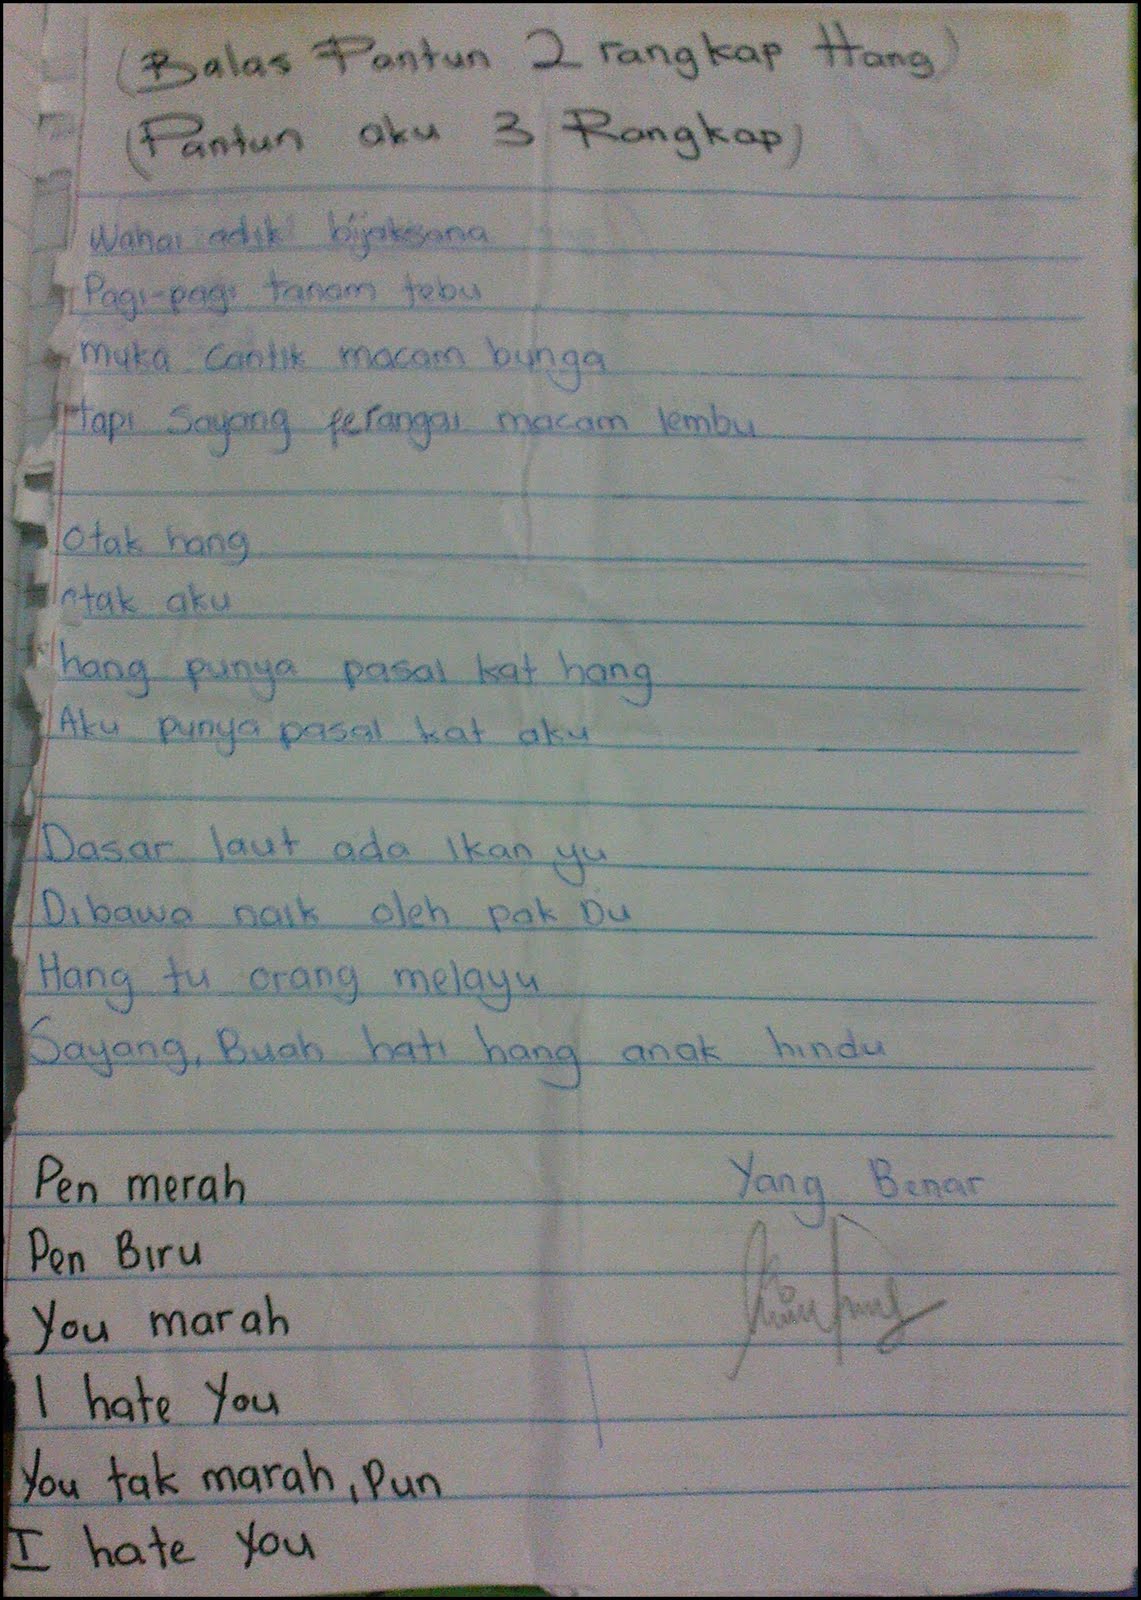 (Balas Pantun 2 rangkap Hang)
(Pantun aku 3 Rangkap)
Wahai adik bijaksana
Pagi-pagi tanam tebu
Muka Cantik macam bunga
tapi Sayang perangai macam lembu
Otak hang
otak aku
hang punya pasal kat hang
Aku punya pasal kat aku
Dasar laut ada Ikan yu
Dibawa naik oleh pak Du
Hang tu orang melayu
Sayang, Buah hati hang anak hindu
Yang Benar
Pen merah
Pen Biru
You marah
I hate You
You tak marah, Pun
I hate You